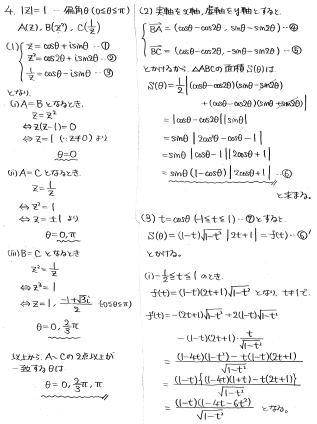 4. |z|=1 … 偏角θ (0≤θ≤π)
A(z), B(z²), C(1/z)
(1) { z = cosθ + i sinθ …①
z² = cos2θ + i sin2θ …②
1/z = cosθ - i sinθ …③
となり、
(i) A=B となるとき、
z = z²
⇔ z(z-1) = 0
⇔ z = 1 (∵ z≠0) より
θ=0
(ii) A=C となるとき
z = 1/z
⇔ z² = 1
⇔ z = ±1 より
θ = 0, π
(iii) B=C となるとき
z² = 1/z
⇔ z³ = 1
⇔ z = 1, (-1+√3i)/2 (0≤θ≤π)
θ = 0, 2/3 π
以上から、A~Cの2点以上が
一致するθは
θ = 0, 2/3 π, π
(2) 実軸をx軸、虚軸をy軸とすると、
{ BA = (cosθ - cos2θ, sinθ - sin2θ) …④
BC = (cosθ - cos2θ, -sinθ - sin2θ) …⑤
とかけるから、△ABCの面積S(θ)は
S(θ) = 1/2 | (cosθ - cos2θ)(sinθ - sin2θ)
+ (cosθ - cos2θ)(sinθ + sin2θ) |
= |cosθ - cos2θ||sinθ|
= sinθ |2cos²θ - cosθ - 1|
= sinθ |cosθ - 1||2cosθ + 1|
= sinθ (1 - cosθ) |2cosθ + 1| …⑥
と求まる。
(3) t = cosθ (-1≤t≤1) …⑦とすると、
S(θ) = (1-t)√(1-t²) |2t+1| = f(t) …⑥'
とかける。
(i) -1/2 ≤ t ≤ 1 のとき、
f(t) = (1-t)(2t+1)√(1-t²) となり、t≠1で、
f'(t) = -(2t+1)√(1-t²) + 2(1-t)√(1-t²)
- (1-t)(2t+1)・t/√(1-t²)
= {(1-4t)(1-t²) - t(1-t)(2t+1)}/√(1-t²)
= (1-t){(1-4t)(1+t) - t(2t+1)}/√(1-t²)
= (1-t)(1-4t-6t²)/√(1-t²) となる。